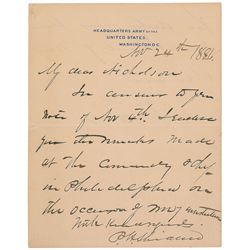 HEADQUARTERS ARMY OF THE
UNITED STATES.
WASHINGTON D.C.
Nov 24th 1886.
My dear Nicholson
In answer to your
Note of Nov 4th I enclose
you the remarks made
at the
in Philadelphia on
the occasion of my
With kind regards,
P H Sheridan